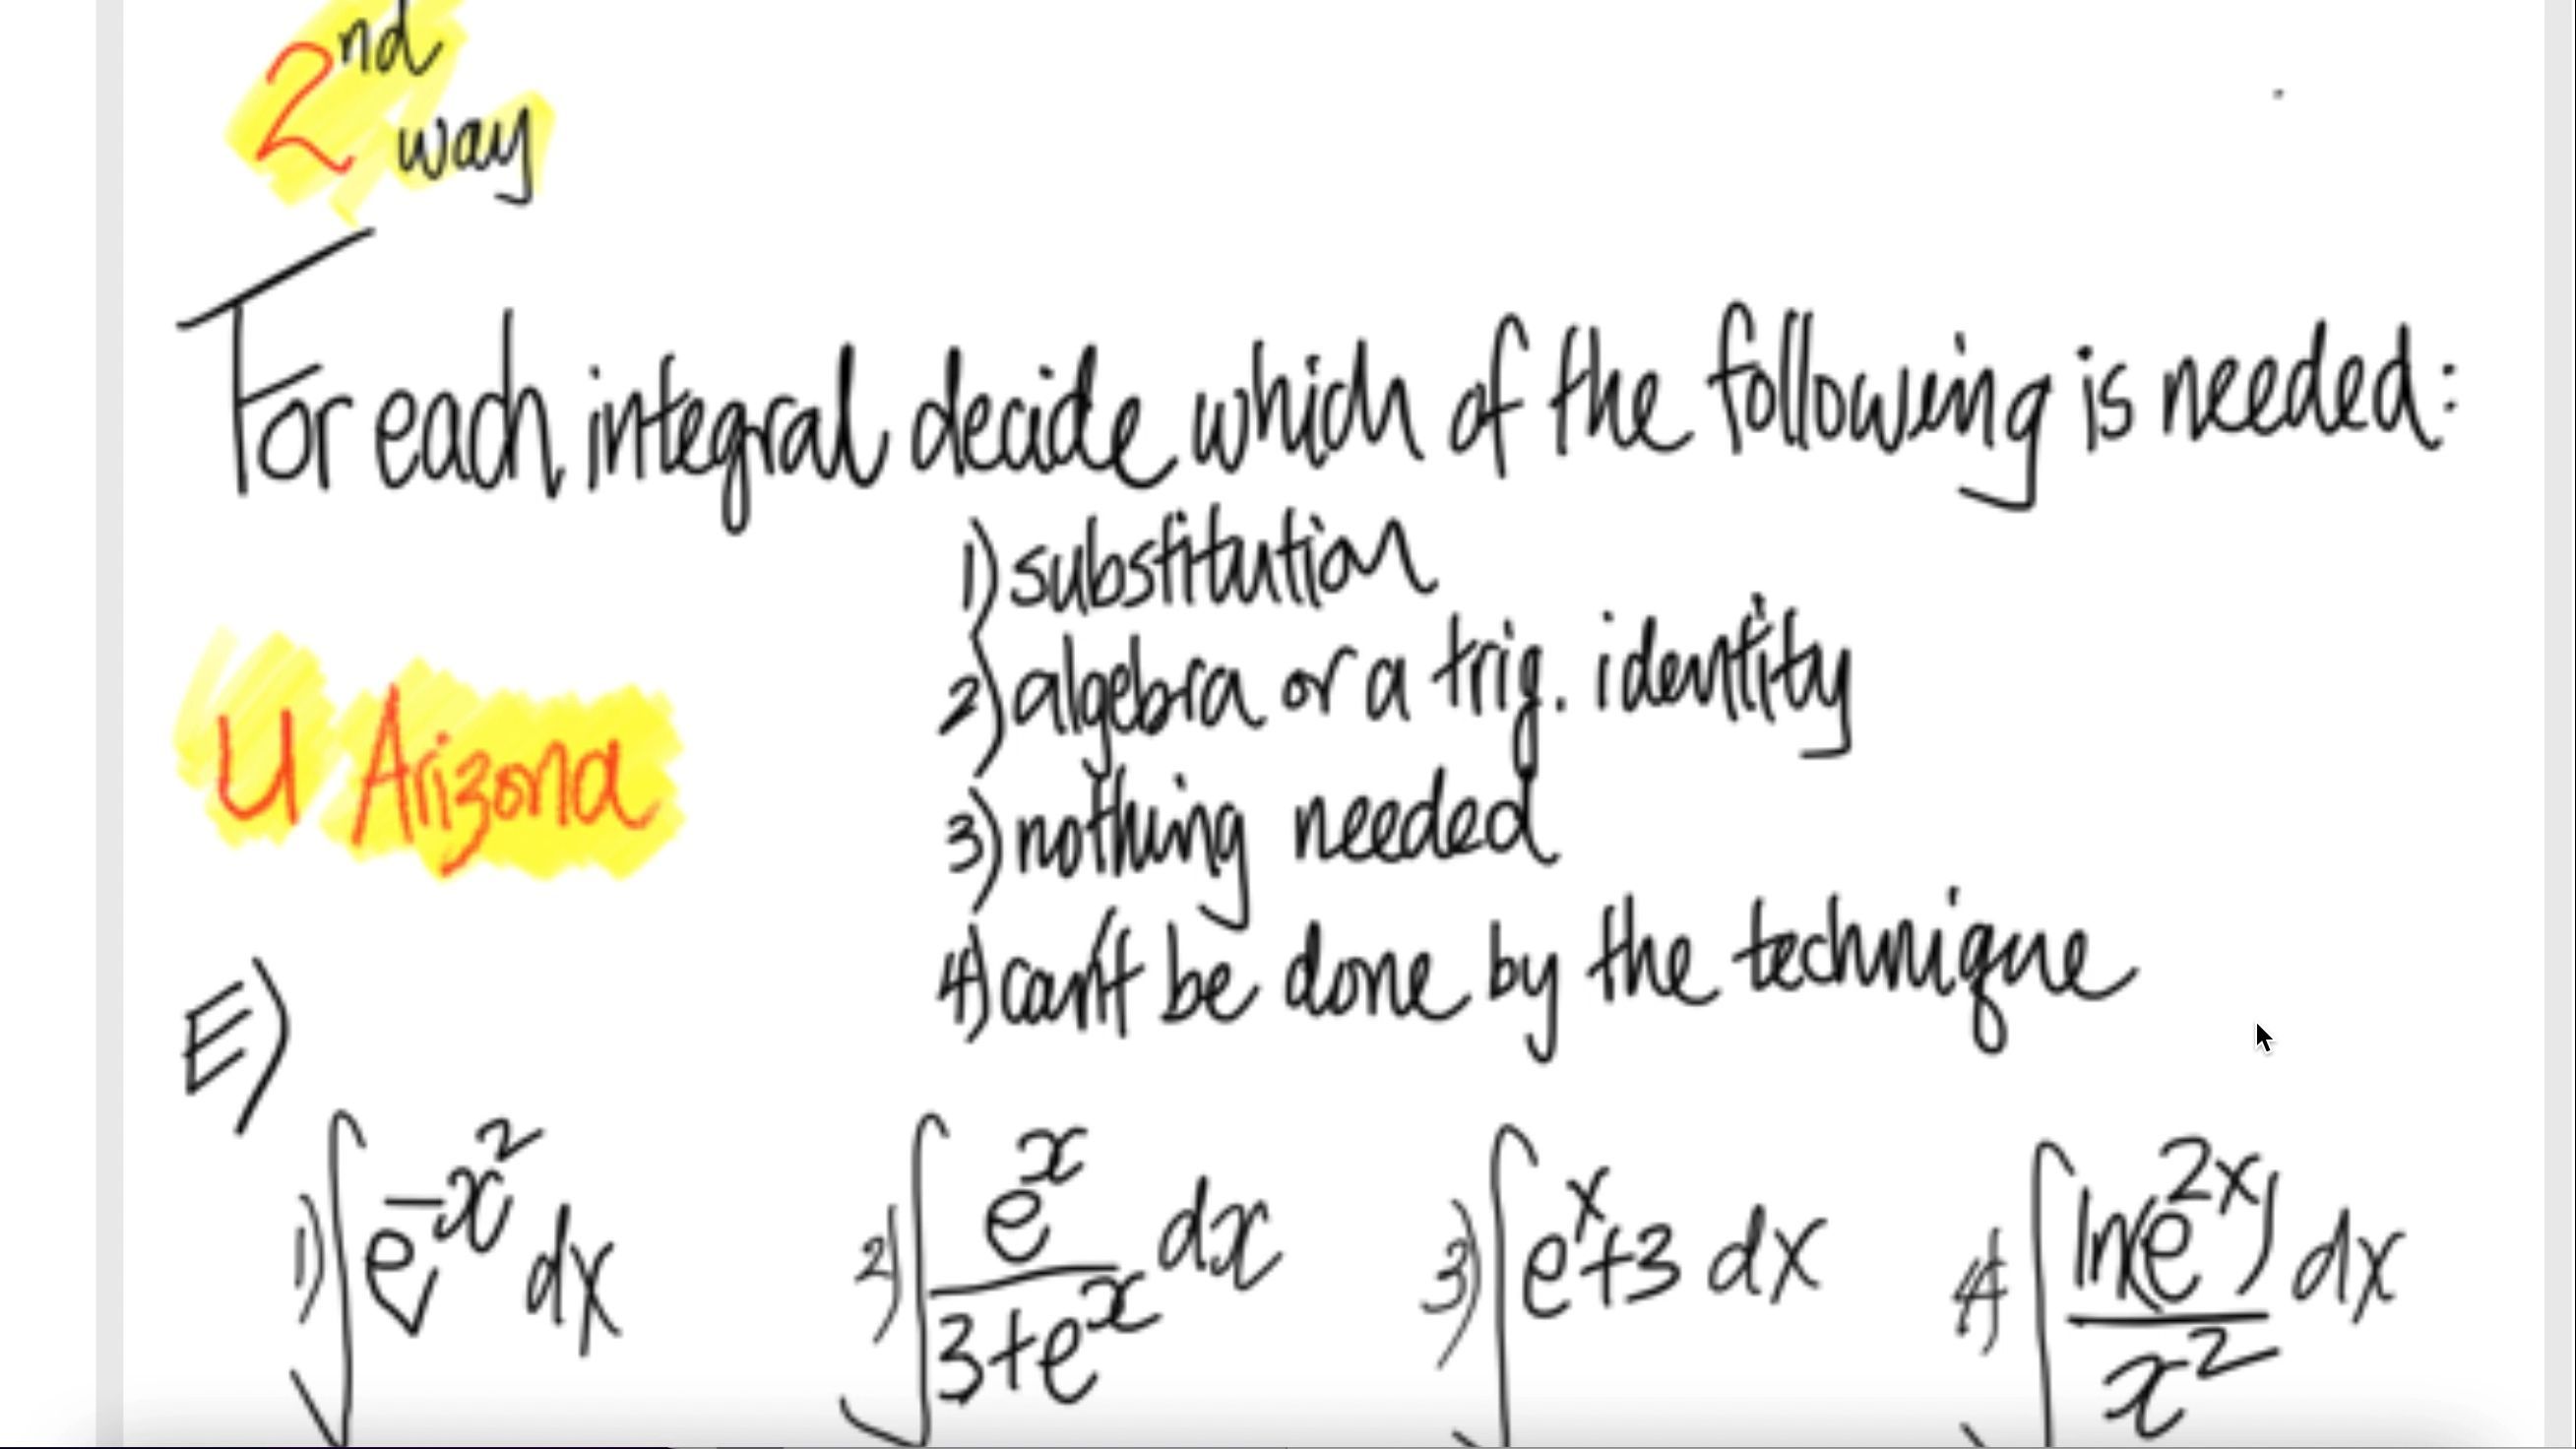 2nd
way
For each integral decide which of the following is needed:
1) substitution
2) algebra or a trig. identity
U Arizona
3) nothing needed
4) can't be done by the technique
E)
1) ∫e^{-x^2} dx 2) ∫\frac{e^x}{3+e^x} dx 3) ∫e^x+3 dx 4) ∫\frac{ln(e^{2x})}{x^2} dx